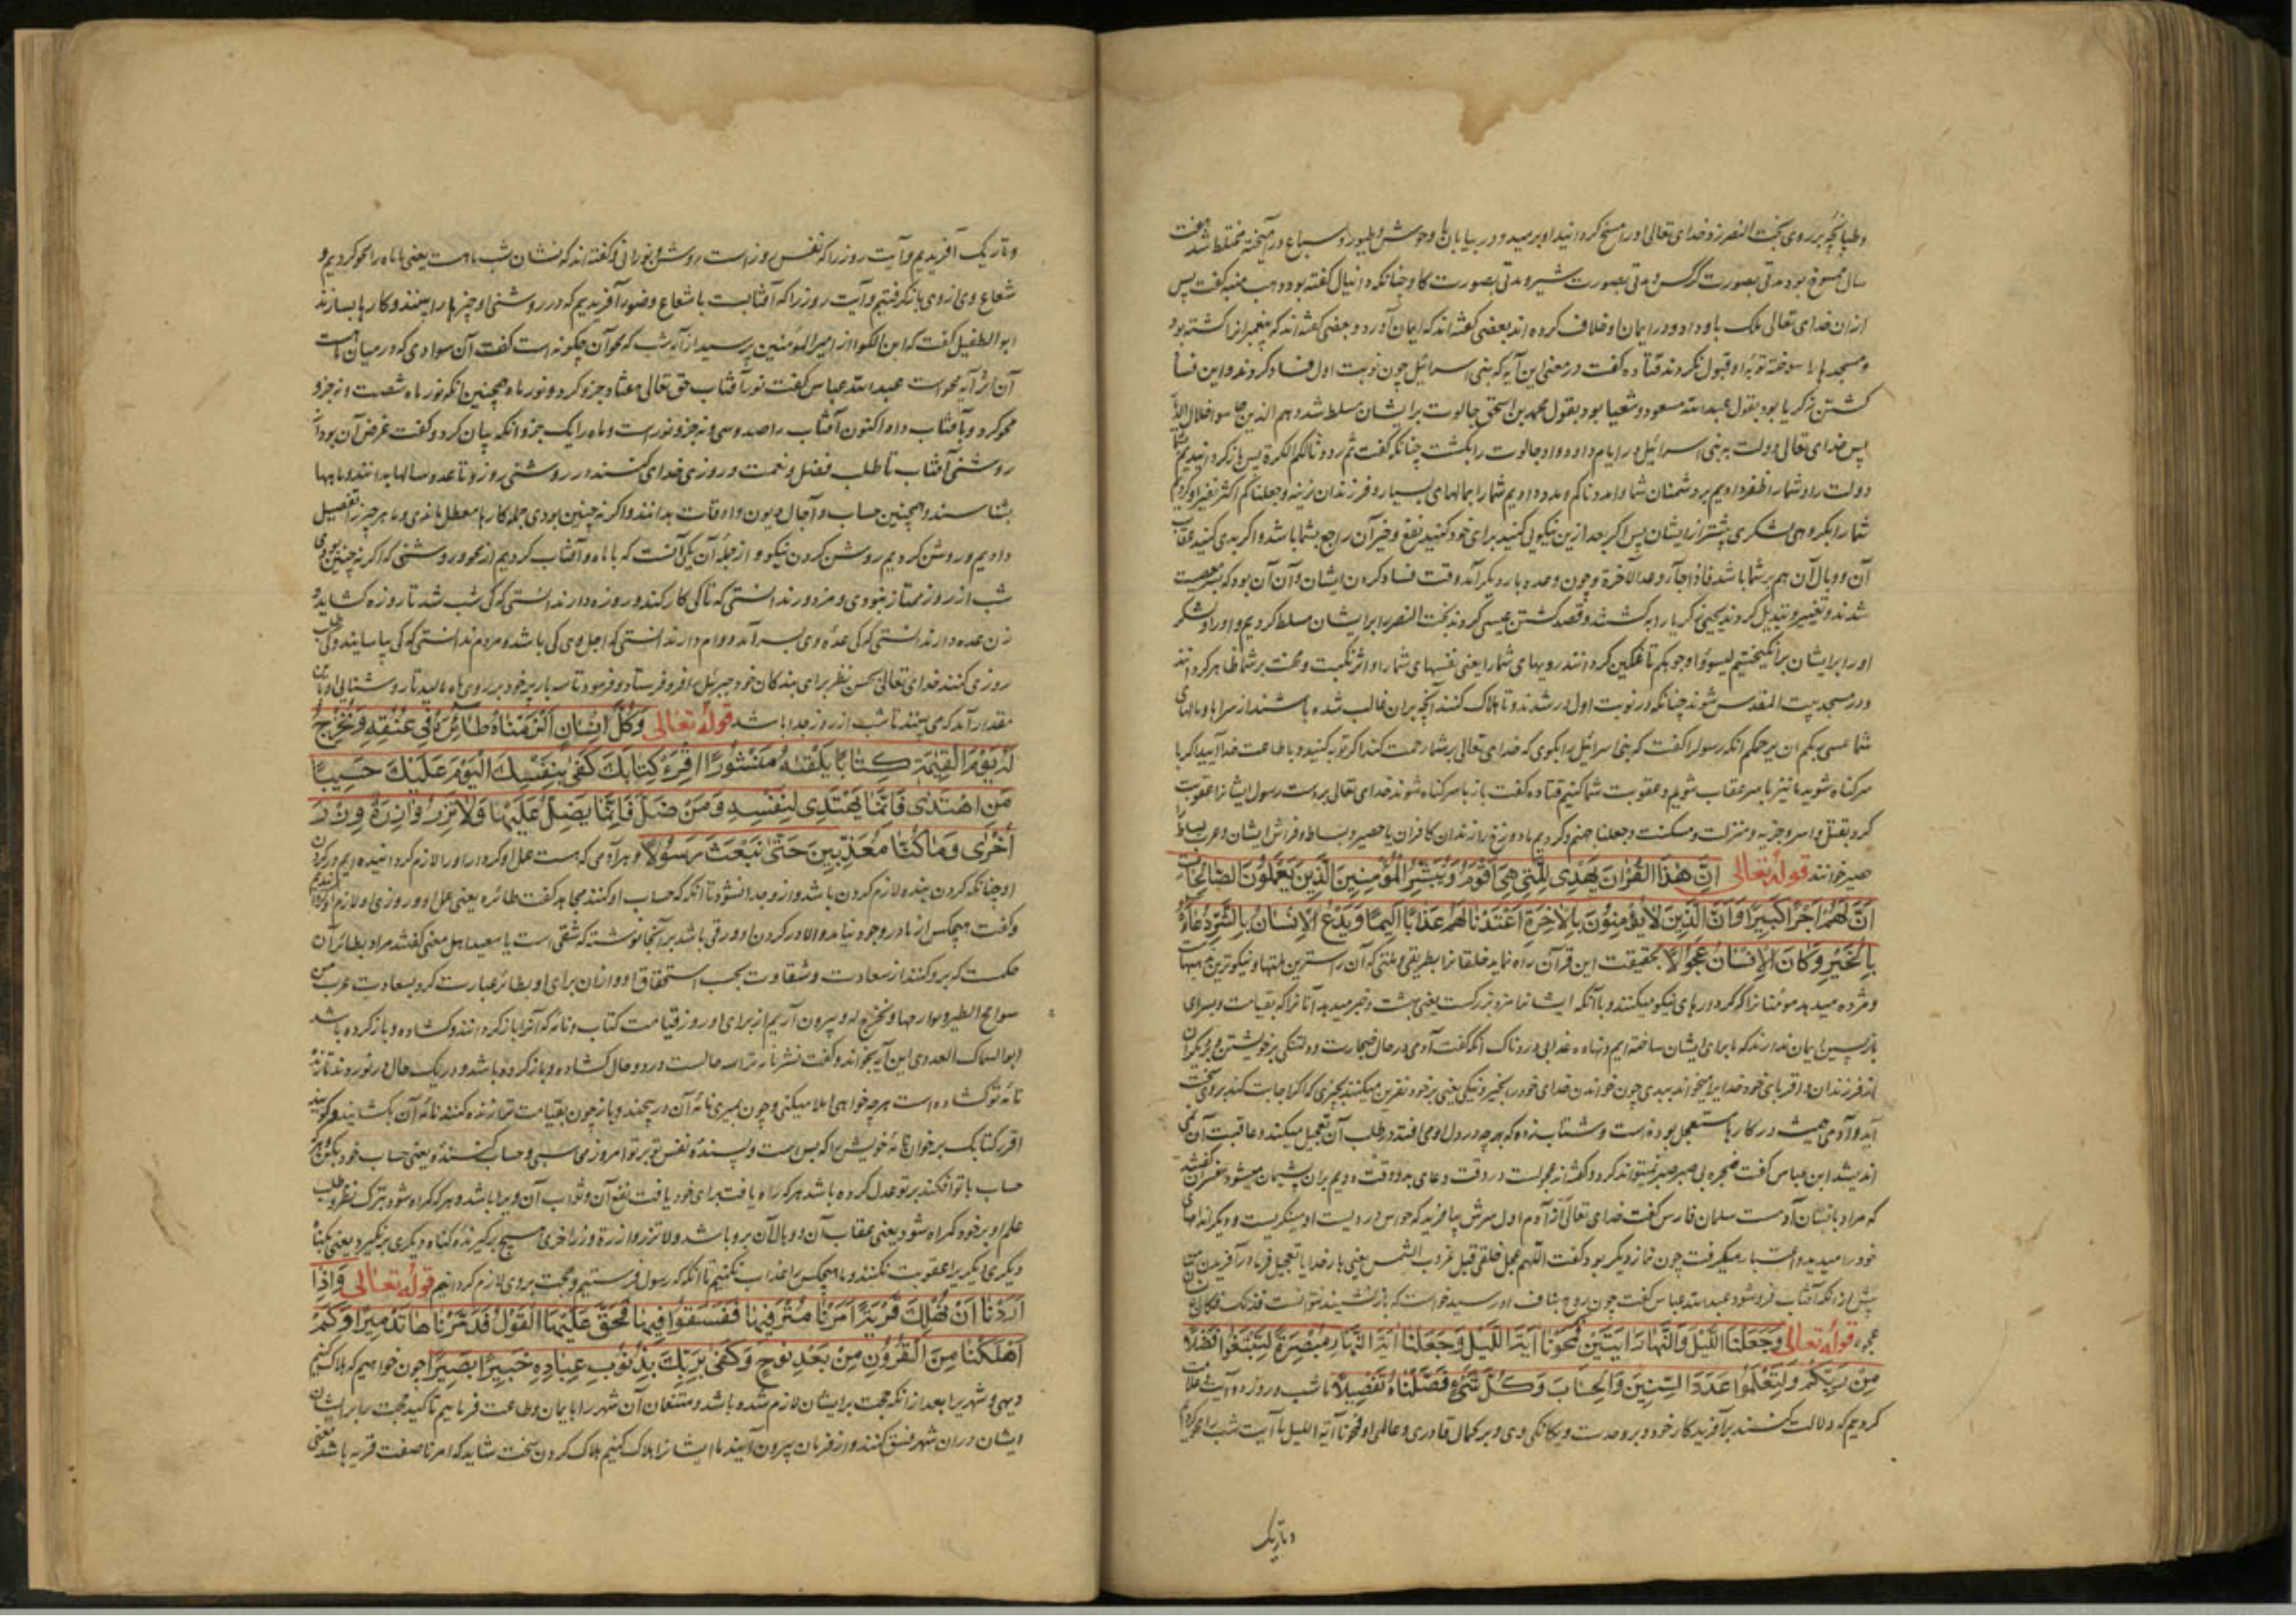 وطپانچه بر روی بخت النصر زد خدای تعالی اورا مسخ کردانید او برمید و در بیابان با وحوش و طیور و سباع درآمیخته مختلط شد هفت
سال ممسوخ بود مدتی بصورت کرکس و مدتی بصورت شیر و مدتی بصورت کاو چنانکه دانیال کفته بود وهب منبه کفت پس
ازان خدای تعالی ملک باو داد و در ایمان او خلاف کرده اند بعضی کفته اند که ایمان آورد و بعضی کفته اند که پیغمبرانرا کشته بود
و مسجدها را سوخته توبهٔ او قبول نکردند قتاده کفت در معنی این آیه که بنی اسرائیل چون نوبت اول فساد کردند و این فسا
کشتن زکریا بود بقول عبدالله مسعود و شعیا بود بقول محمد بن اسحق جالوت بر ایشان مسلط شد و هم الذین جاسوا خلال الدیا
پس خدای تعالی دولت به بنی اسرائیل در ایام داود داد و او جالوت را بکشت چنانکه کفت ثم رددنا لکم الکرة پس باز کردانیدیم شما
دولت را و شما را ظفر دادیم بر دشمنان شما وامددناکم و مدد دادیم شما را بمالهای بسیار و فرزندان نرینه وجعلناکم اکثر نفیرا و کردیم
شما را بکروهی و لشکری بیشتر از ایشان پس اکر بعد ازین نیکویی کنید برای خود کنید نفع و خیر آن راجع بشما باشد و اکر بدی کنید عقاب
آن و وبال آن هم بر شما باشد فاذا جآء وعد الآخرة و چون وعده بار دیکر آمد وقت فساد کردن ایشان و آن آن بود که بسر معصیت
شدند و تغییر و تبدیل کردند یحیی زکریا را بکشتند و قصد کشتن عیسی کردند بخت النصر را بر ایشان مسلط کردیم و اورا و لشکر
اورا بر ایشان برانکیختیم لیسوؤا وجوهکم تا غمکین کردانند رویهای شما را یعنی نفسهای شما را و اثر نکبت و محنت بر شما ظاهر کردانند
و در مسجد بیت المقدس شوند چنانکه در نوبت اول در شدند و تا هلاک کنند آنچه بران غالب شده باشند از سراها و مالهای
شما عسی ربکم ان یرحمکم انکه رسولرا کفت که بنی اسرائیل را بکوی که خدای تعالی بر شما رحمت کند اکر توبه کنید و با طاعت خدا آیید اکر با
سر کناه شوید ما نیز با سر عقاب شویم و عقوبت شما کنیم قتاده کفت باز با سر کناه شوند خدای تعالی بر دست رسول ایشانرا عقوبت
کرد بقتل و اسر و جزیه و مذلت و مسکنت وجعلنا جهنم و کردیم ما دوزخ را زندان کافران یا حصیر و بساط و فراش ایشان و عرب بساط را
حصیر خوانند قوله تعالی اِنَّ هٰذَا القُرْآنَ یَهْدِی لِلَّتِی هِیَ اَقْوَمُ وَیُبَشِّرُ الْمُؤْمِنِینَ الَّذِینَ یَعْمَلُونَ الصَّالِحَاتِ
اَنَّ لَهُمْ اَجْرًا کَبِیرًا وَاَنَّ الَّذِینَ لَا یُؤْمِنُونَ بِالْآخِرَةِ اَعْتَدْنَا لَهُمْ عَذَابًا اَلِیمًا وَیَدْعُ الْاِنْسَانُ بِالشَّرِّ دُعَآءَهُ
بِالْخَیْرِ وَکَانَ الْاِنْسَانُ عَجُولًا بحقیقت این قرآن راه نماید خلقانرا بطریقی و ملتی که آن راسترین ملتها و نیکوترین
و مژده میدهد مومنانرا که کردارهای نیکو میکنند و با آنکه ایشانرا مزد بزرکست یعنی بهشت و خبر میدهد آنانرا که بقیامت و بسرای
بازپسین ایمان ندارند که ما برای ایشان ساخته ایم و نهاده عذابی دردناک آنکه کفت آدمی در حال ضجارت و دلتنکی بر خویشتن و دیکران
از فرزندان و اقربای خود خدایرا میخواند ببدی چون خواندن خدای خود را بخیر و نیکی یعنی بر خود نفرین میکنند بچیزی که اکر اجابت کند بر وی سخت
آید و آدمی همیشه در کارها مستعجل بوده است و شتاب زده که هرچه در دل او می افتد در طلب آن تعجیل میکند و عاقبت آن نمی
اندیشد ابن عباس کفت ضجره بی صبر صبر نمیتواند کرد
که مراد بانسان آدمست سلمان فارسی کفت خدای تعالی از آدم اول سرش بیافرید که حواس در ویست او مینکریست و دیکر اندامهای
خود را میدید و اعتبار میکرفت چون نماز دیکر بود کفت اللهم عجل خلقی قبل غروب الشمس یعنی بار خدایا تعجیل فرما در آفریدن من
پیش از آنکه آفتاب فرو شود عبدالله عباس کفت چون روح بناف او رسید خواست که بازنشیند نتوانست فذلک قوله کان
عجولا قوله تعالی وَجَعَلْنَا اللَّیْلَ وَالنَّهَارَ اٰیَتَیْنِ فَمَحَوْنَا اٰیَةَ اللَّیْلِ وَجَعَلْنَا اٰیَةَ النَّهَارِ مُبْصِرَةً لِتَبْتَغُوا فَضْلًا
مِنْ رَبِّکُمْ وَلِتَعْلَمُوا عَدَدَ السِّنِینَ وَالْحِسَابَ وَکُلَّ شَیْءٍ فَصَّلْنَاهُ تَفْصِیلًا ما شب و روز دو آیت و علامت
کردیم که دلالت کنند بر آفریدکار خود و بر وحدت و یکانکی وی و بر کمال قادری و عالمی او فمحونا آیة اللیل ما آیت شب را محو کردیم
و تاریک
و تاریک آفریدیم و آیت روز را که نفس روز است روشن و نورانی و کفته اند که نشان شب ماهست یعنی ما ماه را محو کردیم و
شعاع وی از وی باز کرفتیم و آیت روز را که آفتابست با شعاع و ضوء آفریدیم که در روشنی او چیزها را بینند و کارها بسازند
ابو الطفیل کفت که ابن الکوا از امیر المؤمنین پرسید از آیه شب که محو آن چکونه است کفت آن سوادی که در میان ماهست
آن اثر آیه محو است عبدالله عباس کفت نور آفتاب حق تعالی هفتاد جزو کرد و نور ماه همچنین انکه نور ماه شصت و نه جزو
محو کرد و بآفتاب داد اکنون آفتاب را صد و سی و نه جزو نور است و ماه را یک جزو انکه بیان کرد و کفت غرض آن بود
روشنی آفتاب تا طلب فضل و نعمت و روزی خدای کنند در روشنی روز و تا عدد سالها بدانند و ماهها
بشناسند و همچنین حساب و آجال دیون و اوقات بدانند و اکر نه چنین بودی جمله کارها معطل ماندی و ما هر چیز را تفصیل
دادیم و روشن کردیم روشن کردن نیکو و از جملهٔ آن یکی آنست که با ماه و آفتاب کردیم از محو و روشنی که اکر نه چنین بودی
شب از روز ممتاز نبودی و مزدور ندانستی که تا کی کار کند و روزه دار ندانستی که کی شب شد تا روزه کشاید و
زن عده دار ندانستی که کی عدهٔ وی بسر آمد و وام دار ندانستی که اجل وی کی باشد و مردم ندانستی که کی بیاسایند و کی طلب
روزی کنند خدای تعالی بحسن نظر برای بندکان خود جبرئیل را فرو فرستاد و فرمود تا سه بار پر خود بر روی ماه مالید تا روشنایی او باین
مقدار آمد که می بینند تا شب از روز جدا باشد قوله تعالی وَکُلَّ اِنْسَانٍ اَلْزَمْنَاهُ طَآئِرَهُ فِی عُنُقِهِ وَنُخْرِجُ
لَهُ یَوْمَ الْقِیٰمَةِ کِتَابًا یَلْقٰیهُ مَنْشُورًا اِقْرَءْ کِتَابَکَ کَفٰی بِنَفْسِکَ الْیَوْمَ عَلَیْکَ حَسِیبًا
مَنِ اهْتَدٰی فَاِنَّمَا یَهْتَدِی لِنَفْسِهِ وَمَنْ ضَلَّ فَاِنَّمَا یَضِلُّ عَلَیْهَا وَلَا تَزِرُ وَازِرَةٌ وِزْرَ
اُخْرٰی وَمَا کُنَّا مُعَذِّبِینَ حَتّٰی نَبْعَثَ رَسُولًا و هر آدمی که هست عمل او کردار او را لازم کردانیده ایم در کردن
او چنانکه کردن بنده لازم کردن باشد و از و جدا نشود تا انکه که حساب او کنند مجاهد کفت طائره یعنی عمل او و روزی او لازم او کردانیدیم
و کفت هیچکس از مادر وجود نیاید و الا در کردن او ورقی باشد بر آنجا نوشته که شقی است یا سعید اهل معنی کفتند مراد بطائر آن
حکمست که بر و کنند از سعادت و شقاوت بحسب استحقاق او و ازان برای او بطائر عبارت کرد بسعادت عرب من
سوانح الطیر و بوارحها ونخرج له و بیرون آریم از برای او روز قیامت کتاب و نامه که آنرا باز کردانند و کشاده و باز کرده باشد
ابو السماک العدوی این آیه بخواند و کفت نشر نامه ترا سه حالست در دو حال کشاده و باز کرده باشد و در یک حال در نوردند تا زندهٔ
نامهٔ تو کشاده است هرچه خواهی املا میکنی و چون بمیری نامهٔ آن درپیچند و باز چون بقیامت ترا زنده کنند نامهٔ آن بکشایند و کویند
اقرء کتابک برخوان نامهٔ خویش را که بس است و پسنده نفس تو بر تو امروز محاسبی و حساب کننده یعنی حساب خود بکن و هرکه
حساب با تو افکند بر تو عدل کرده باشد هرکه راه یافت برای خود یافت نفع آن و ثواب آن ویرا باشد و هرکه کمراه شود بترک نظر و طلب
علم او بر خود کمراه شود یعنی عقاب آن و وبال آن برو باشد ولا تزر وازرة وزر اخری هیچ برکیرندهٔ کناه دیکری برنکیرد یعنی بکناه
دیکری دیکریرا عقوبت نکنند و ما هیچکس را عذاب نکنیم تا انکه که رسول فرستیم و حجت بر وی لازم کردانیم قوله تعالی وَاِذَا
اَرَدْنَا اَنْ نُهْلِکَ قَرْیَةً اَمَرْنَا مُتْرَفِیهَا فَفَسَقُوا فِیهَا فَحَقَّ عَلَیْهَا الْقَوْلُ فَدَمَّرْنَاهَا تَدْمِیرًا وَکَمْ
اَهْلَکْنَا مِنَ الْقُرُونِ مِنْ بَعْدِ نُوحٍ وَکَفٰی بِرَبِّکَ بِذُنُوبِ عِبَادِهِ خَبِیرًا بَصِیرًا چون خواهیم که هلاک کنیم
دیهی و شهری را بعد از انکه حجت بر ایشان لازم شده باشد و متنعمان آن شهر را بایمان و طاعت فرماییم تاکید حجت را بر ایشان
ایشان دران شهر فسق کنند و از فرمان بیرون آیند ما ایشانرا هلاک کنیم هلاک کردن سخت شاید که امرنا صفت قریه باشد یعنی